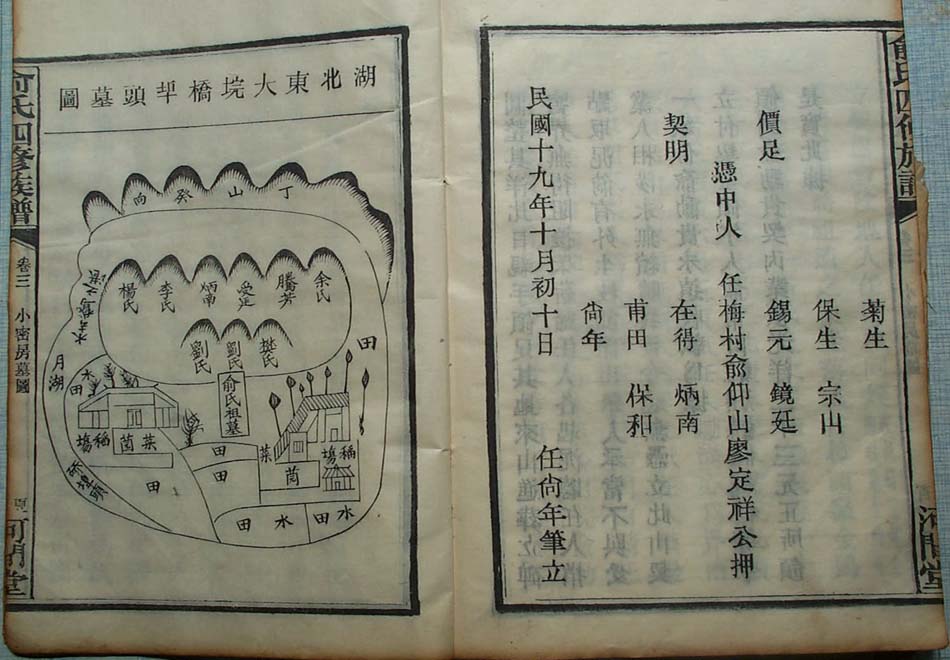 菊生
保生　宗山
價足
錫元　鏡廷
憑中人　任梅村俞仰山廖定祥公押
契明
在得　炳南
甫田　保和
尙年
民國十九年十月初十日　任尙年筆立
河間堂
湖北東大垸橋埠頭墓圖
丁山癸向
余氏
騰芳
受廷
炳南
李氏
楊氏
樊氏
劉氏
劉氏
俞氏祖墓
田
月湖
水田
稻場
菜園
田
田
田
菜園
稻場
田
水田
水田
俞氏四修族譜
卷三
小密房墓圖
河間堂